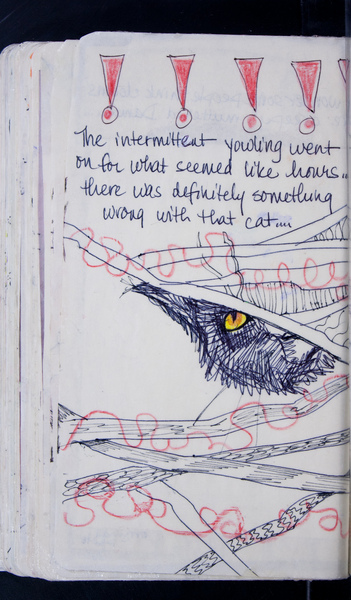 The intermittent yowling went
on for what seemed like hours...
there was definitely something
wrong with that cat....